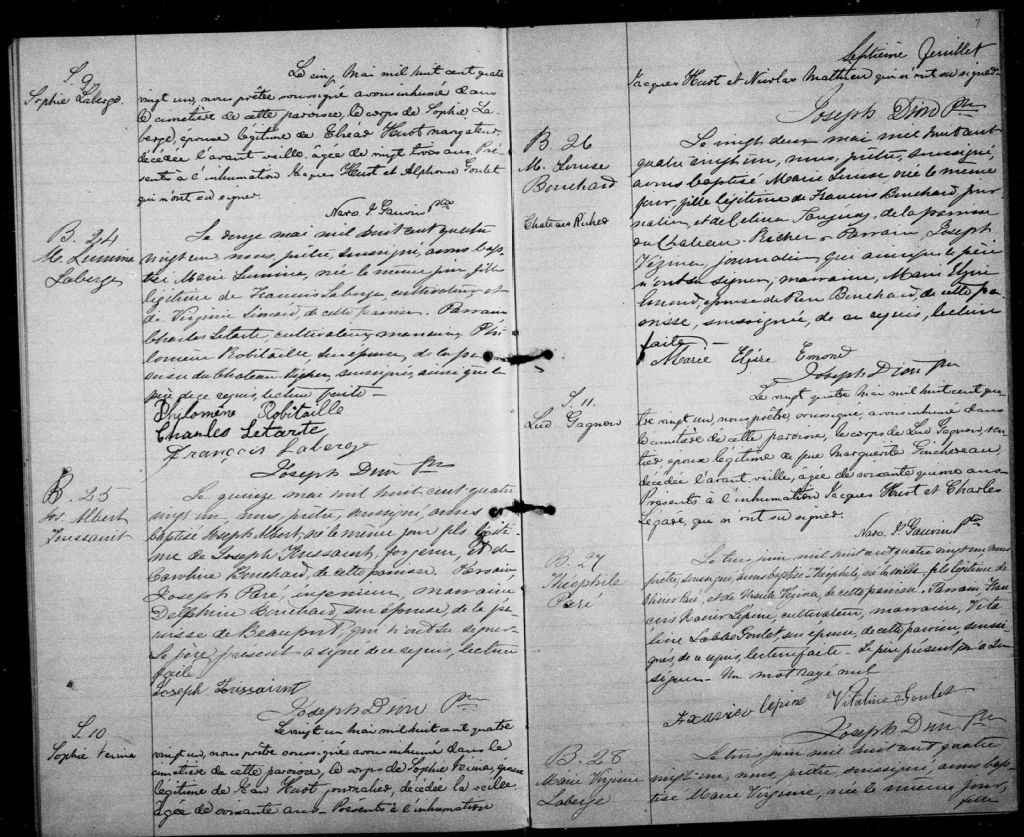 S. 9
Sophie Laberge.
Le cinq Mai mil huit cent quatre
vingt un, nous prêtre soussigné avons inhumé dans
le cimetière de cette paroisse, le corps de Sophie La-
berge, épouse légitime de Huot navigateur,
décédée l'avant veille, âgée de vingt trois ans. Pré-
sents à l'inhumation Jacques Huot et Alphonse Goulet
qui n'ont su signer.
Narc. J. Gauvin Ptre
B. 24
M. Lumina
Laberge
Le douze mai mil huit cent quatre
vingt un, nous, prêtre, soussigné, avons bap-
tisé Marie Lumina, née le même jour, fille
légitime de Francois Laberge, cultivateur, et
de Virginie Simard, de cette paroisse. Parrain
Charles Letarte, cultivateur, marraine, Phi-
lomène Robitaille, son épouse, de la pa-
roisse du Chateau Richer, soussignés, ainsi que le
père de ce requis, lecture faite —
Phylomène Robitaille
Charles Letarte
François Laberge
Joseph Dion Ptre
B. 25
Jos. Albert
Toussaint
Le quinze mai mil huit cent quatre
vingt un, nous, prêtre, soussigné, avons
baptisé Joseph Albert, né le même jour, fils légiti-
me de Joseph Toussaint, forgeron, et de
Caroline Bouchard, de cette paroisse. Parrain,
Joseph Paré, ingenieur, marraine,
Delphine Bouchard, son épouse, de la pa-
roisse de Beauport, qui n'ont su signer.
Le père, présent a signé de ce requis, lecture
faite.
Joseph Toussaint
Joseph Dion Ptre
S. 10
Sophie Vezina
Le vingt un Mai mil huit cent quatre
vingt un, nous prêtre soussigné avons inhumé dans le
cimetière de cette paroisse, le corps de Sophie Vezina, épouse
légitime de Jean Huot journalier, décédée la veille
âgée de soixante ans. Présents à l'inhumation
7
Septième feuillet
Jacques Huot et Nicolas Mathieu qui n'ont su signer.
Joseph Dion Ptre
B. 26
M. Louise
Bouchard
Chateau Richer
Le vingt deux mai mil huit cent
quatre vingt un, nous, prêtre, soussigné,
avons baptisé Marie Louise née le même
jour, fille légitime de Francois Bouchard, jour-
nalier, et de Celina, de la paroisse
du Chateau Richer. Parrain, Joseph
Vézina, journalier, qui ainsi que le père
n'ont su signer, marraine, Marie Elzire
Emond, épouse de Bouchard, de cette pa-
roisse, soussignée, de ce requis, lecture
faite —
Marie Elzire Emond
Joseph Dion Ptre
S. 11.
Lud Gagnon
Le vingt quatre Mai mil huit cent qua-
tre vingt un, nous prêtre, soussigné, avons inhumé dans
le cimetière de cette paroisse, le corps de Lud Gagnon, ren-
tier époux légitime de feue Marguerite Guichereau,
décédée l'avant veille, âgée de soixante quinze ans.
Présents à l'inhumation Jacques Huot et Charles
Légaré, qui n'ont su signer.
Narc. J. Gauvin Ptre
B. 27
Théophile
Paré
Le trois juin mil huit cent quatre vingt un, nous
prêtre, soussigné, avons baptisé Théophile, né la veille, fils légitime de
Olivier Paré, et de Ursule Vézina, de cette paroisse. Parrain, Fran-
cois Xavier Lépine, cultivateur, marraine, Vita-
line Labbé Goulet, son épouse, de cette paroisse, soussi-
gnés, de ce requis, lecture faite. Le père présent n'a su
signer. Un mot rayé nul
F. Xavier lépine Vitaline Goulet
Joseph Dion Ptre
B. 28
Marie Virginie
Laberge
Le trois juin mil huit cent quatre
vingt un, nous, prêtre, soussigné, avons bap-
tisé Marie Virginie, née le même jour,
fille